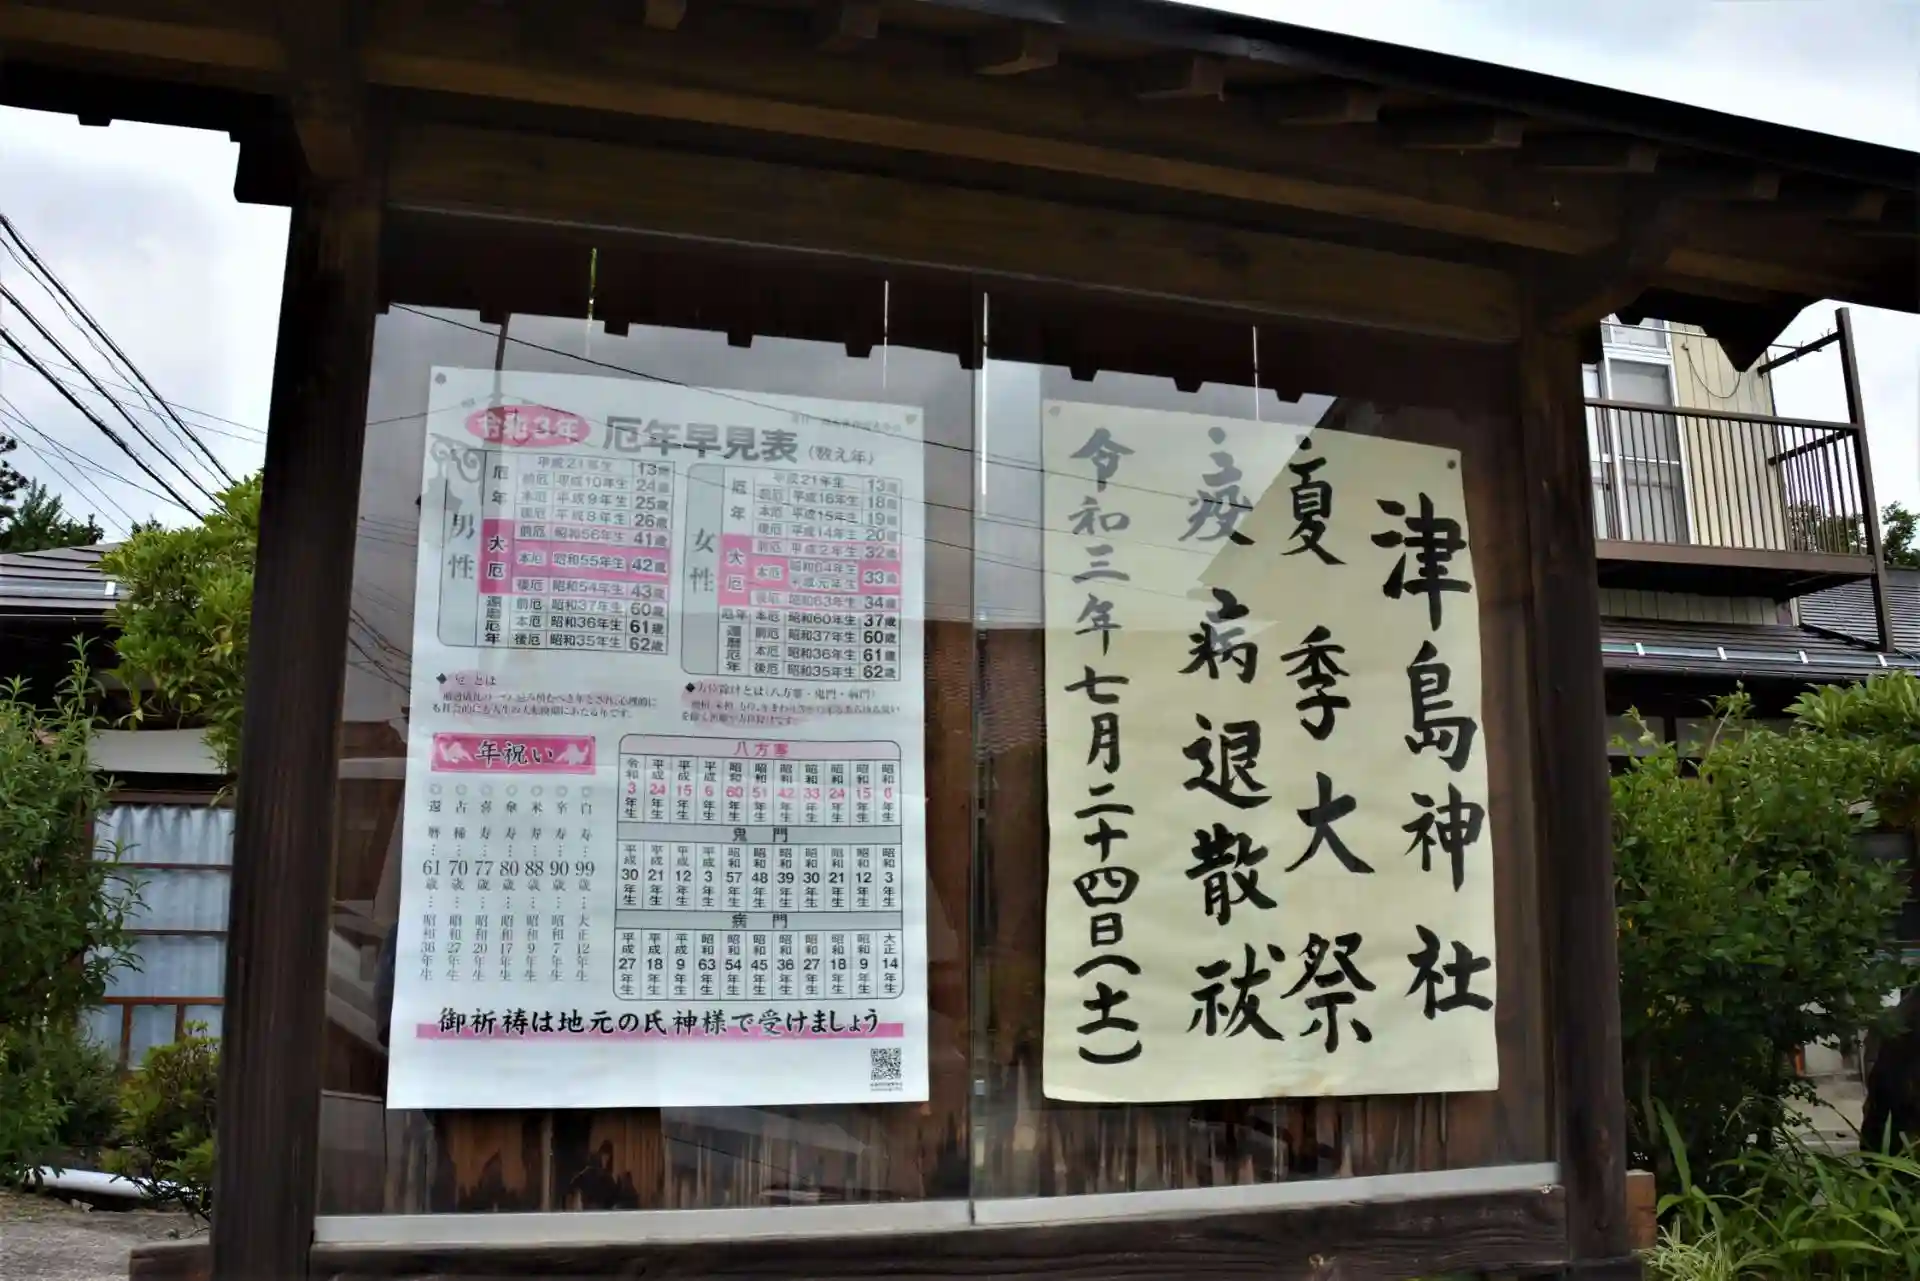 令和3年 厄年早見表 (数え年)
男性
厄年
平成21年生 13歳
前厄 平成10年生 24歳
本厄 平成9年生 25歳
後厄 平成8年生 26歳
大厄
前厄 昭和56年生 41歳
本厄 昭和55年生 42歳
後厄 昭和54年生 43歳
還暦厄年
前厄 昭和37年生 60歳
本厄 昭和36年生 61歳
後厄 昭和35年生 62歳
女性
厄年
平成21年生 13歳
前厄 平成16年生 18歳
本厄 平成15年生 19歳
後厄 平成14年生 20歳
大厄
前厄 平成2年生 32歳
本厄 昭和64年生 平成元年生 33歳
後厄 昭和63年生 34歳
厄年 本厄 昭和60年生 37歳
還暦厄年
前厄 昭和37年生 60歳
本厄 昭和36年生 61歳
後厄 昭和35年生 62歳
とは
も社会的にも人生の大転換期にあたる年です。
◆方位除けとは(八方塞・鬼門・病門)
年祝い
○還暦…61歳…昭和36年生
○古稀…70歳…昭和27年生
○喜寿…77歳…昭和20年生
○傘寿…80歳…昭和17年生
○米寿…88歳…昭和9年生
○卒寿…90歳…昭和7年生
○白寿…99歳…大正12年生
八方塞
令和3年生 平成24年生 平成15年生 平成6年生 昭和60年生 昭和51年生 昭和42年生 昭和33年生 昭和24年生 昭和15年生 昭和6年生
鬼門
平成30年生 平成21年生 平成12年生 平成3年生 昭和57年生 昭和48年生 昭和39年生 昭和30年生 昭和21年生 昭和12年生 昭和3年生
病門
平成27年生 平成18年生 平成9年生 昭和63年生 昭和54年生 昭和45年生 昭和36年生 昭和27年生 昭和18年生 昭和9年生 大正14年生
御祈祷は地元の氏神様で受けましょう
津島神社
夏季大祭
疫病退散祓
令和三年七月二十四日(土)